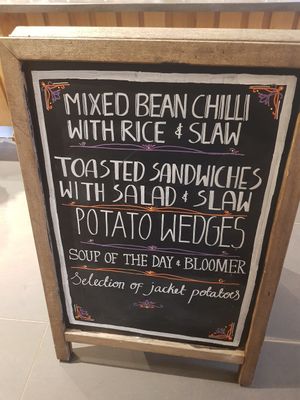 MIXED BEAN CHILLI
WITH RICE & SLAW
TOASTED SANDWICHES
WITH SALAD & SLAW
POTATO WEDGES
SOUP OF THE DAY & BLOOMER
Selection of jacket potatoes